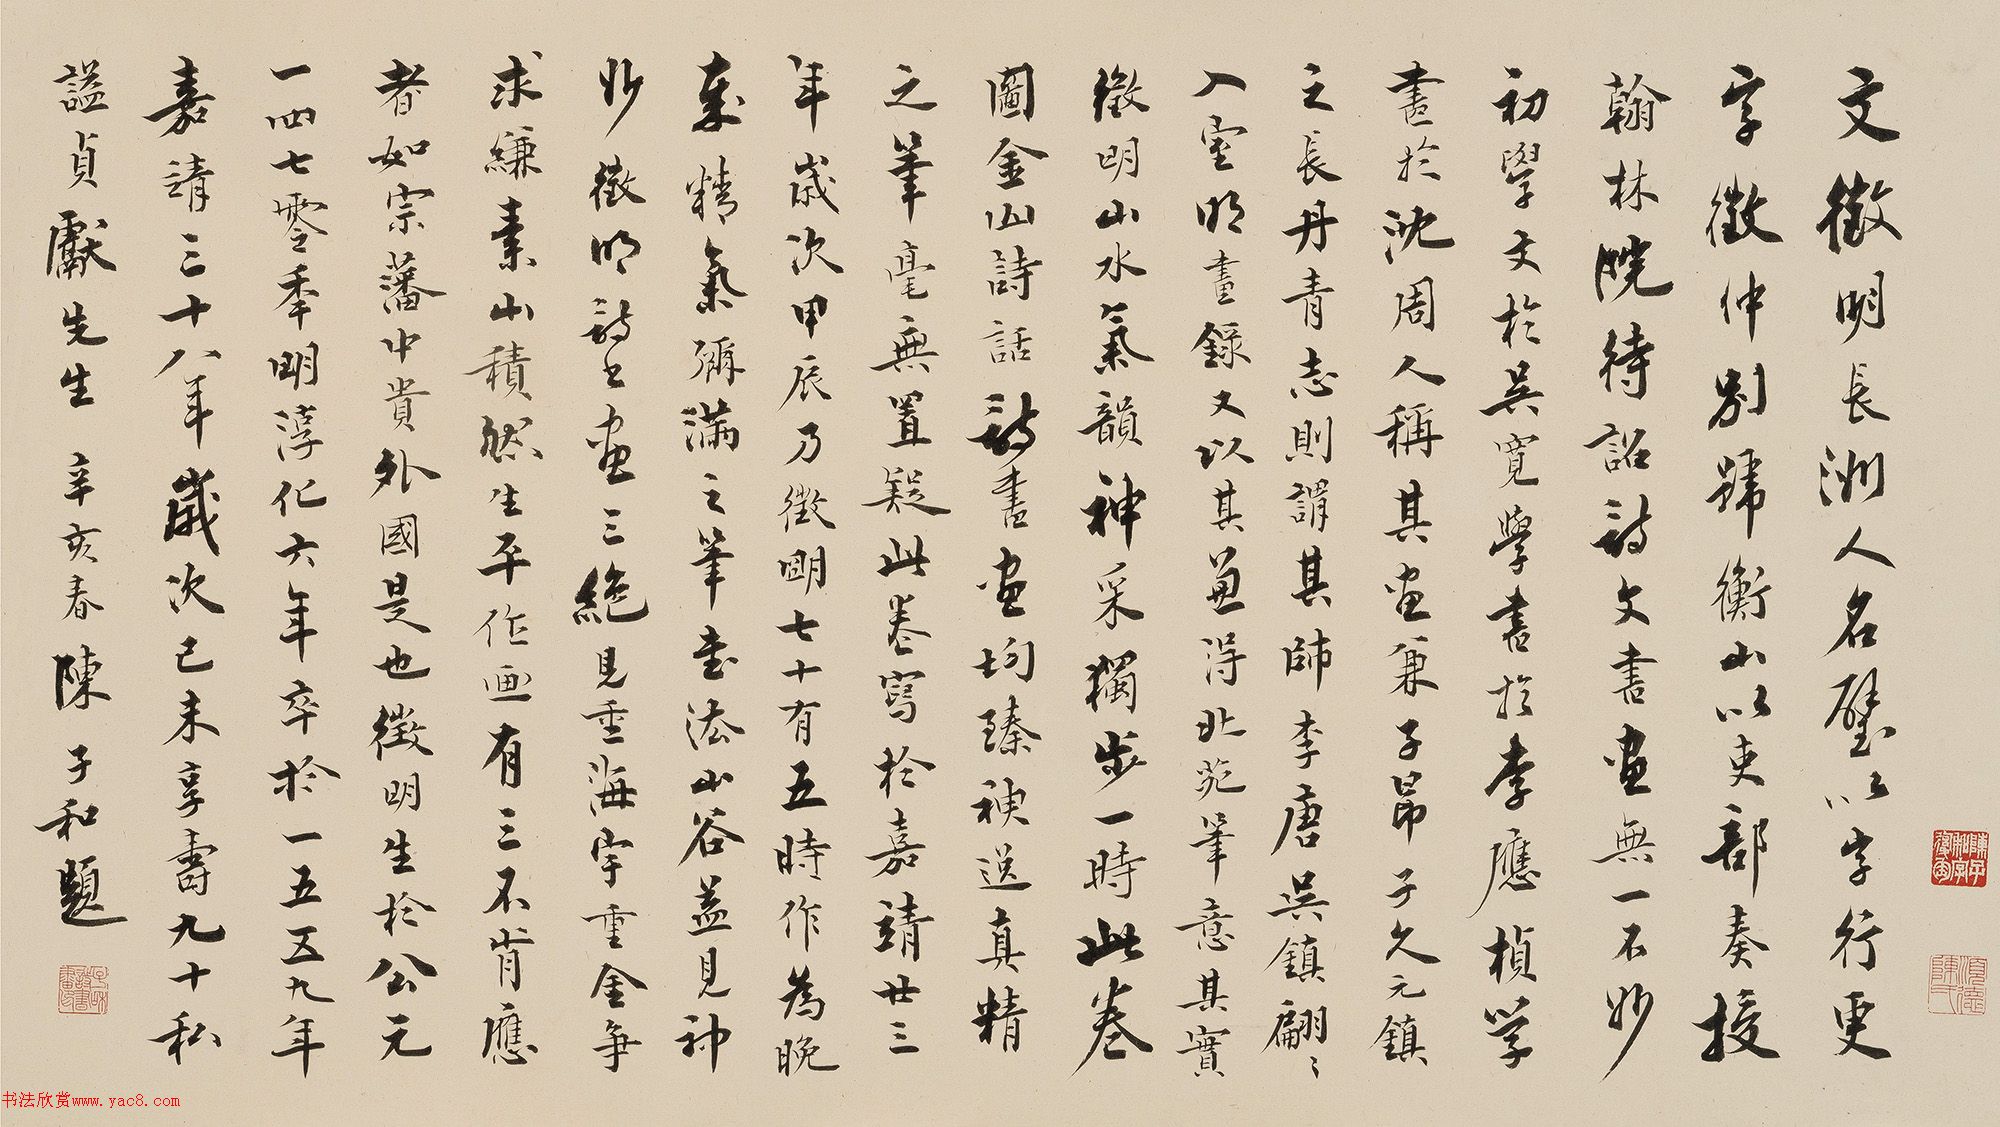 文徵明長洲人名璧以字行更
字徵仲別號衡山以吏部奏授
翰林院待詔詩文書畫無一不妙
初學文於吳寬學書於李應楨學
畫於沈周人稱其畫兼子昂子久元鎮
之長丹青志則謂其師李唐吳鎮翩〻
入室明畫錄又以其兼得北苑筆意其實
徵明山水氣韻神采獨步一時此卷
圖金山詩話詩書畫均臻神逸真精
之筆毫無置疑此卷寫於嘉靖廿三
年歲次甲辰乃徵明七十有五時作為晚
年精氣彌滿之筆書法山谷益見神
妙徵明詩書畫三絕見重海宇重金爭
求縑素山積然生平作画有三不肯應
者如宗藩中貴外國是也徵明生於公元
一四七零季明淳化六年卒於一五五九年
嘉靖三十八年歲次己未享壽九十私
謚貞獻先生 辛亥春陳子和題
书法欣赏www.yac8.com